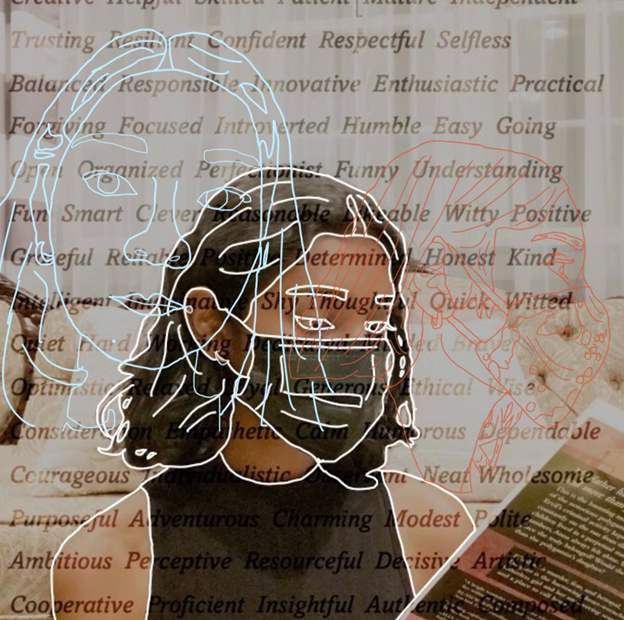 Creative Helpful Skilled Patient Mature Independent
Trusting Resilient Confident Respectful Selfless
Balanced Responsible Innovative Enthusiastic Practical
Forgiving Focused Introverted Humble Easy Going
Open Organized Perfectionist Funny Understanding
Fun Smart Clever Reasonable Likeable Witty Positive
Graceful Reliable Positive Determined Honest Kind
Intelligent Shy Thoughtful Quick Witted
Quiet Hard Working Dedicated Brave
Optimistic Relaxed Loyal Generous Ethical Wise
Consideration Empathetic Calm Humorous Dependable
Courageous Individualistic Neat Wholesome
Purposeful Adventurous Charming Modest Polite
Ambitious Perceptive Resourceful Decisive Artistic
Cooperative Proficient Insightful Authentic Composed